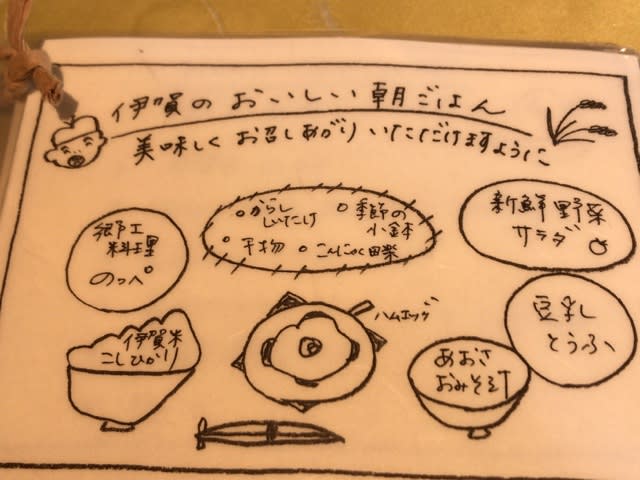 伊賀のおいしい朝ごはん
美味しくお召しあがりいただけますように
郷土
料理
のっぺ
○からし
しいたけ
○季節の
小鉢
○干物 ○こんにゃく田楽
新鮮野菜
サラダ
伊賀米
こしひかり
ハムエッグ
あおさ
おみそ汁
豆乳
とうふ